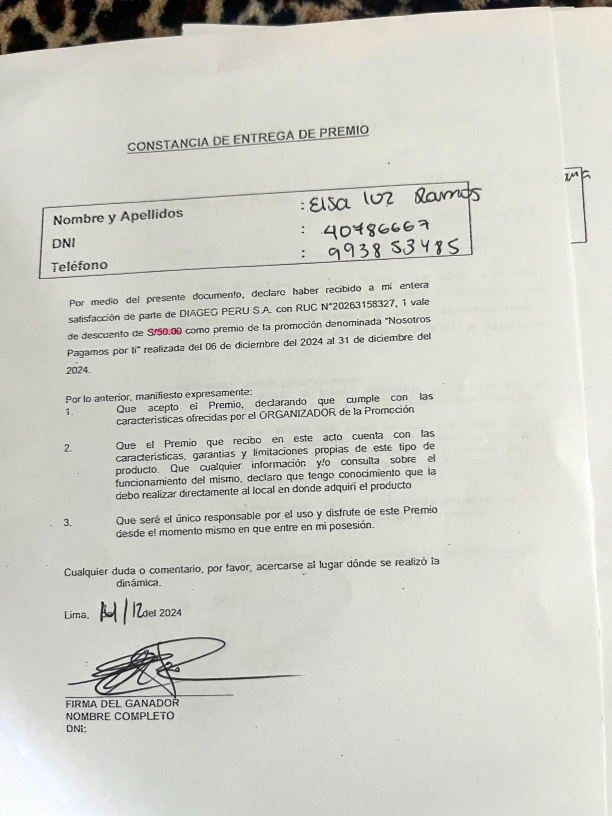 CONSTANCIA DE ENTREGA DE PREMIO
Nombre y Apellidos : Elsa luz Ramos
DNI : 40786667
Teléfono : 993853485
Por medio del presente documento, declaro haber recibido a mi entera
satisfacción de parte de DIAGEO PERU S.A. con RUC N°20263158327, 1 vale
de descuento de S/50.00 como premio de la promoción denominada "Nosotros
Pagamos por ti" realizada del 06 de diciembre del 2024 al 31 de diciembre del
2024.
Por lo anterior, manifiesto expresamente:
1. Que acepto el Premio, declarando que cumple con las
características ofrecidas por el ORGANIZADOR de la Promoción
2. Que el Premio que recibo en este acto cuenta con las
características, garantías y limitaciones propias de este tipo de
producto. Que cualquier información y/o consulta sobre el
funcionamiento del mismo, declaro que tengo conocimiento que la
debo realizar directamente al local en donde adquirí el producto
3. Que seré el único responsable por el uso y disfrute de este Premio
desde el momento mismo en que entre en mi posesión.
Cualquier duda o comentario, por favor, acercarse al lugar dónde se realizó la
dinámica.
Lima, /12 del 2024
FIRMA DEL GANADOR
NOMBRE COMPLETO
DNI: